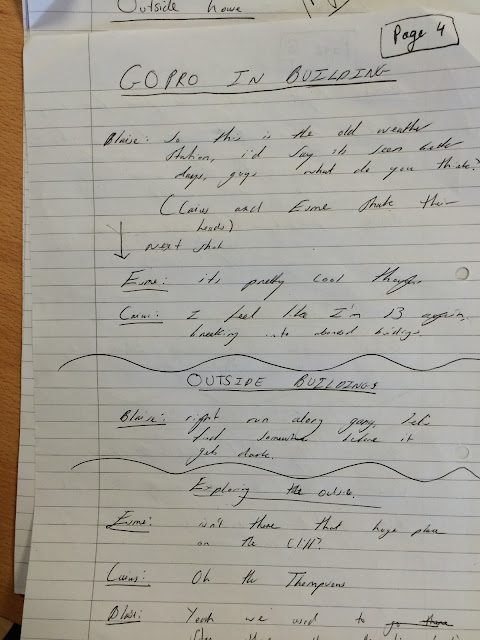 Outside house
Page 4
GOPRO IN BUILDING
Blaise: So this is the old weather
station, i'd say its seen better
days, guys what do you think?
(Caius and Esme shake their
heads)
next shot
Esme: its pretty cool though
Caius: I feel like I'm 13 again,
breaking into
OUTSIDE BUILDINGS
Blaise: right run along gang, let's
find somewhere before it
gets dark.
Exploring the outside.
Esme: isn't there that huge place
on the cliff?
Caius: Oh the Thompsons
Blaise: Yeah we used to go there